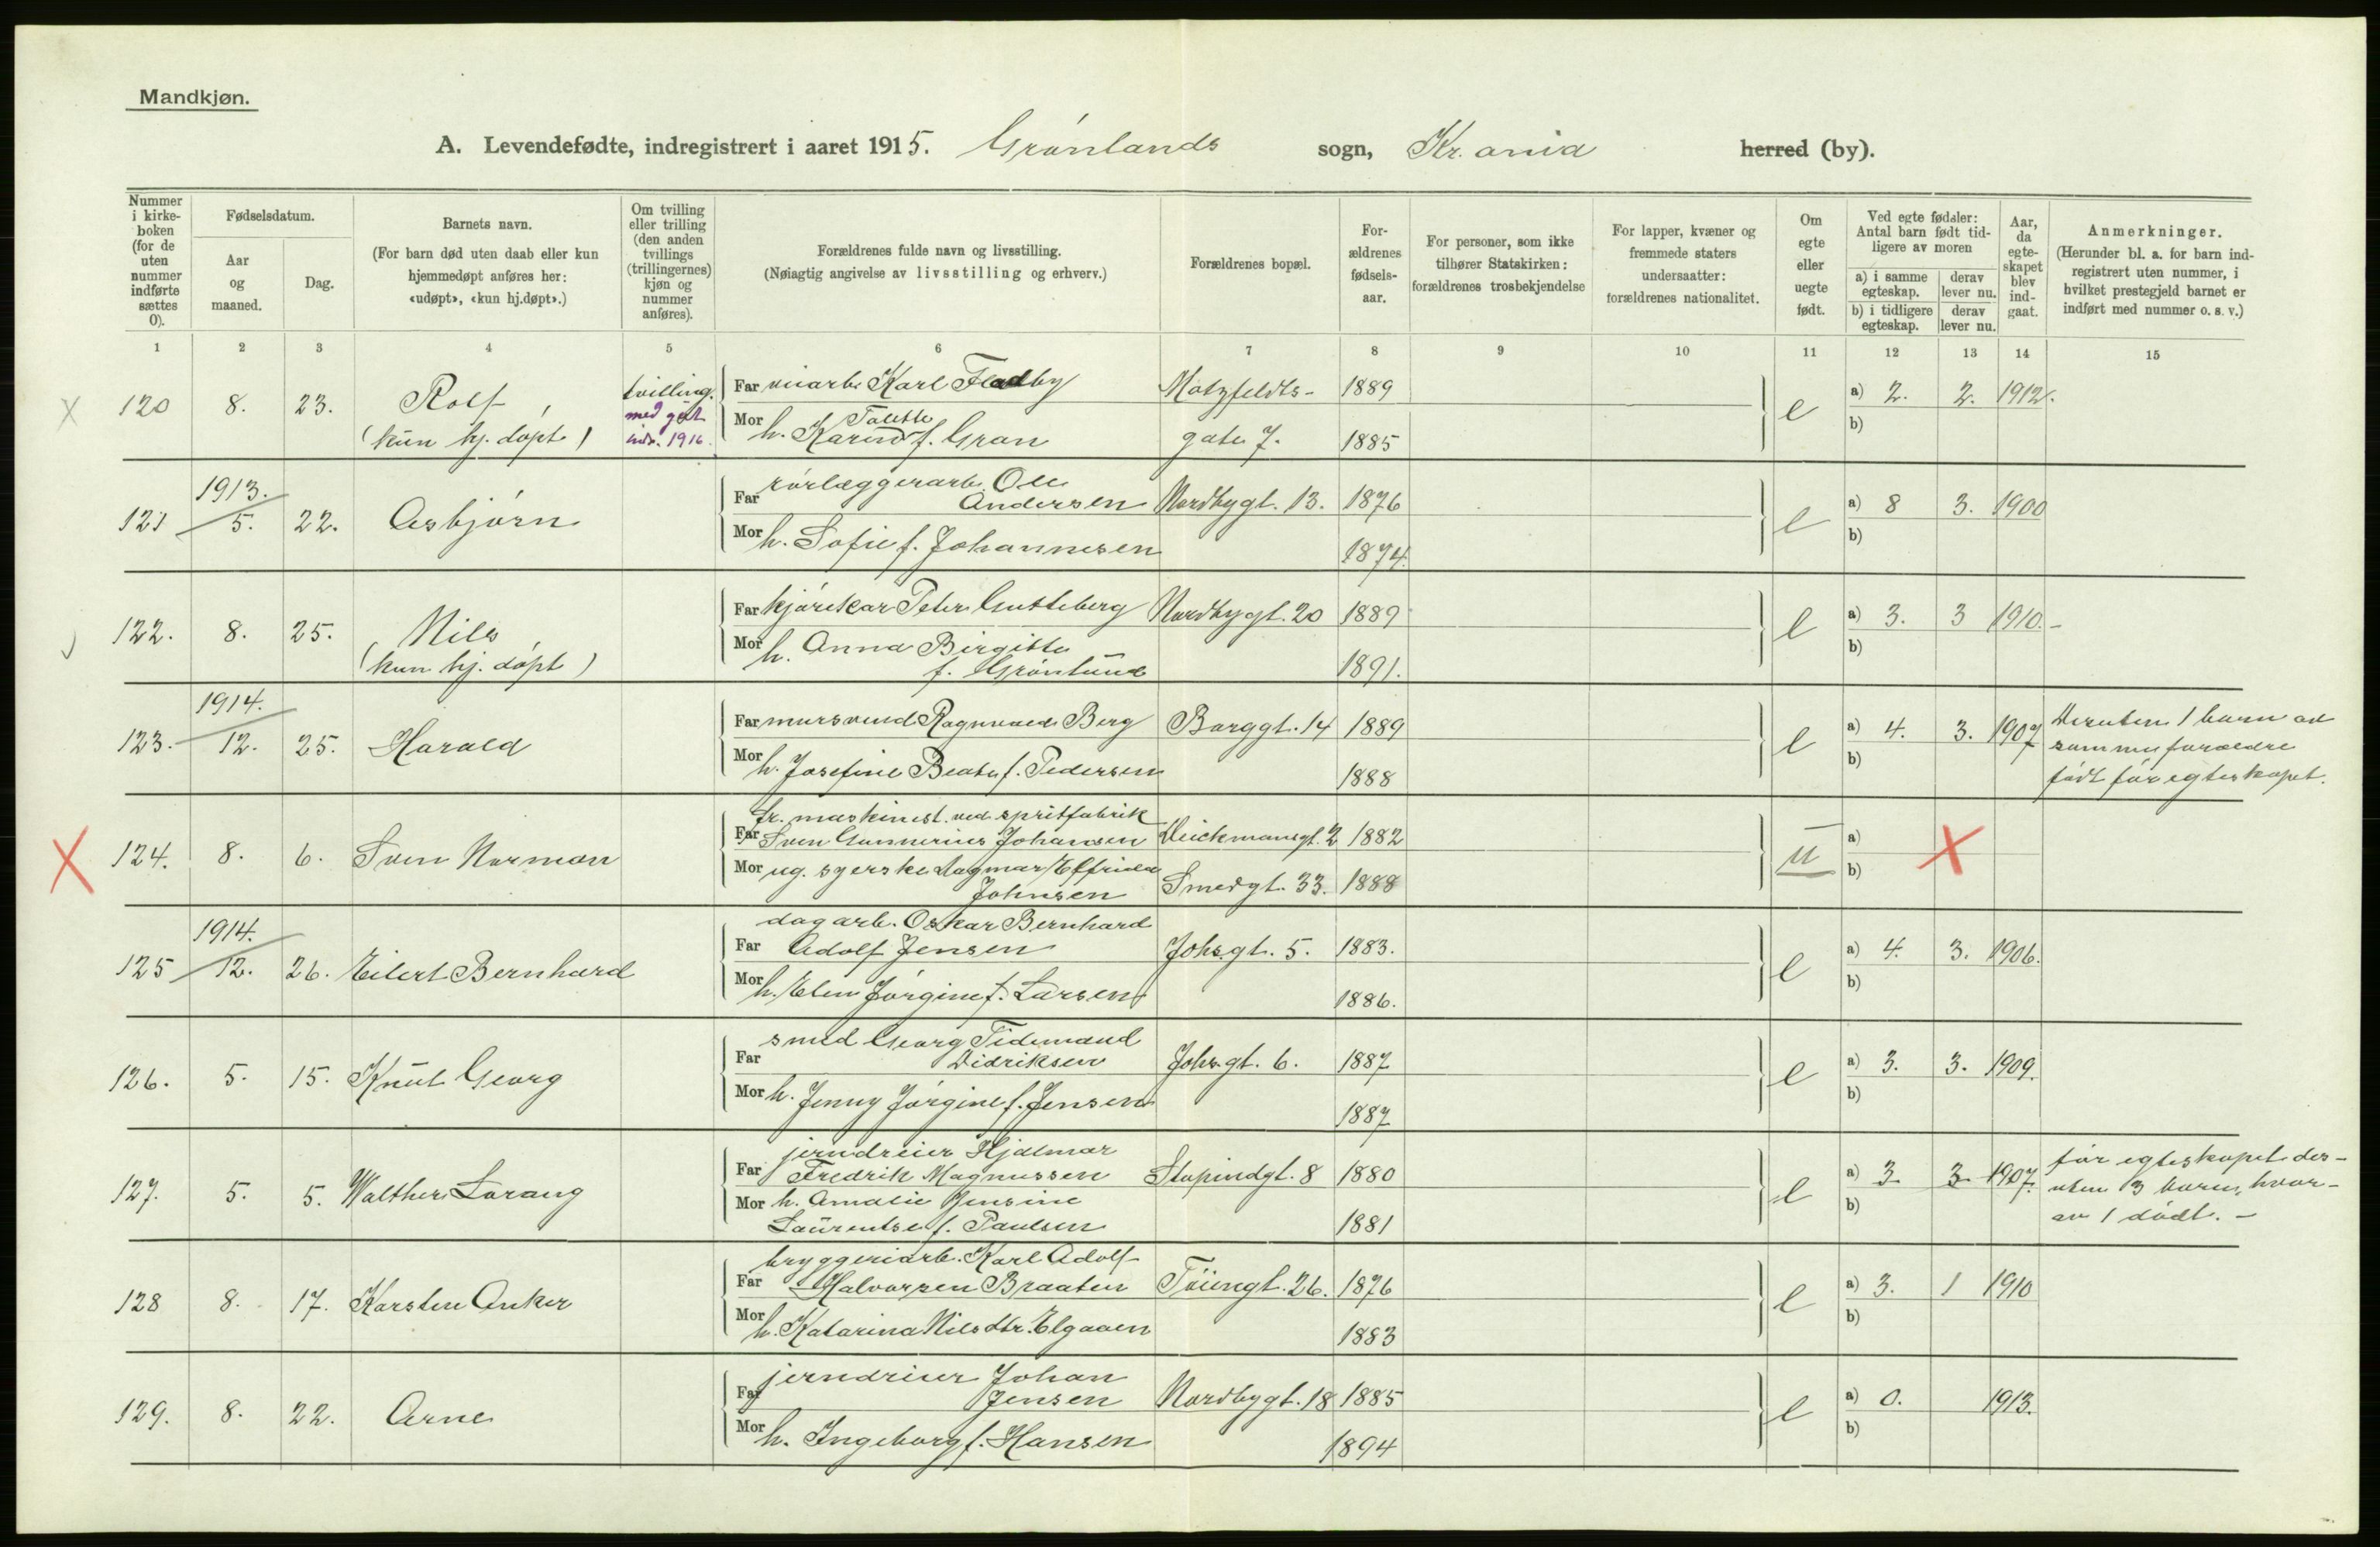 Mandkjøn.
A. Levendefødte, indregistrert i aaret 1915. Grønlands sogn, Kr.ania herred (by).
Nummer i kirkeboken (for de uten nummer indførte sættes 0).
Fødselsdatum.
Aar og maaned.
Dag.
Barnets navn.
(For barn død uten daab eller kun hjemmedøpt anføres her: «udøpt», «kun hj.døpt».)
Om tvilling eller trilling (den anden tvillings (trillingernes) kjøn og nummer anføres).
Forældrenes fulde navn og livsstilling.
(Nøiagtig angivelse av livsstilling og erhverv.)
Forældrenes bopæl.
Forældrenes fødselsaar.
For personer, som ikke tilhører Statskirken: forældrenes trosbekjendelse
For lapper, kvæner og fremmede staters undersaatter: forældrenes nationalitet.
Om egte eller uegte født.
Ved egte fødsler: Antal barn født tidligere av moren
a) i samme egteskap.
derav lever nu.
b) i tidligere egteskap.
derav lever nu.
Aar, da egteskapet blev indgaat.
Anmerkninger.
(Herunder bl. a. for barn indregistrert uten nummer, i hvilket prestegjeld barnet er indført med nummer o. s. v.)
1 2 3 4 5 6 7 8 9 10 11 12 13 14 15
X 120 8. 23. Rolf (kun hj. døpt) tvilling. med gut indr. 1916.
Far Karl Fladby Motzfeldts- 1889
Mor h. Karen f. Gran gate 7. 1885
e a) 2. 2. 1912.
b)
121 1913. 5. 22. Asbjørn
Far rørlæggerarb. Ole Andersen Nordbygt. 13. 1876
Mor h. Sofie f. Johannesen 1874.
e a) 8 3. 1900
b)
122. 8. 25. Nils (kun hj. døpt)
Far kjørekar Peter Gutteberg Nordbygt. 20 1889
Mor h. Anna Birgitte f. Grønlund 1891.
e a) 3. 3 1910.-
b)
123. 1914. 12. 25. Harald
Far mursvend Ragnvald Berg Borggt. 14 1889
Mor h. Josefine Beate f. Pedersen 1888
e a) 4. 3. 1907 Desuten 1 barn av samme forældre født før egteskapet.
b)
X 124. 8. 6. Sven Norman
Far fr. maskinist. ved spritfabrik Sven Gunnerius Johansen Deichmansgt. 2 1882
Mor ug. syerske Dagmar Elfrida Johnsen Smedgt. 33. 1888
u a) X
b)
125 1914. 12. 26. Eilert Bernhard
Far dagarb. Oskar Bernhard Adolf Jensen Johs.gt. 5. 1883.
Mor h. Elen Jørgine f. Larsen 1886.
e a) 4. 3. 1906.
b)
126. 5. 15. Knut Georg
Far smed Georg Tidemand Didriksen Johs.gt. 6. 1887
Mor h. Jenny Jørgine f. Jensen 1887
e a) 3. 3. 1909.
b)
127. 5. 5. Walther Lorang
Far jerndreier Hjalmar Fredrik Magnussen Stupindgt. 8 1880
Mor h. Amalie Jensine Laurentse f. Paulsen 1881
e a) 3. 3. 1907. før egteskapet desuten 3 barn, hvorav 1 dødt. -
b)
128 8. 17. Karsten Anker
Far bryggeriarb. Karl Adolf Halvorsen Braaten Tøiengt. 26. 1876
Mor h. Katarina Nilsdtr. Elgaaen 1883
e a) 3. 1 1910
b)
129. 8. 22. Arne
Far jerndreier Johan Jensen Nordbygt. 18 1885
Mor h. Ingeborg f. Hansen 1894
e a) 0. 1913.
b)